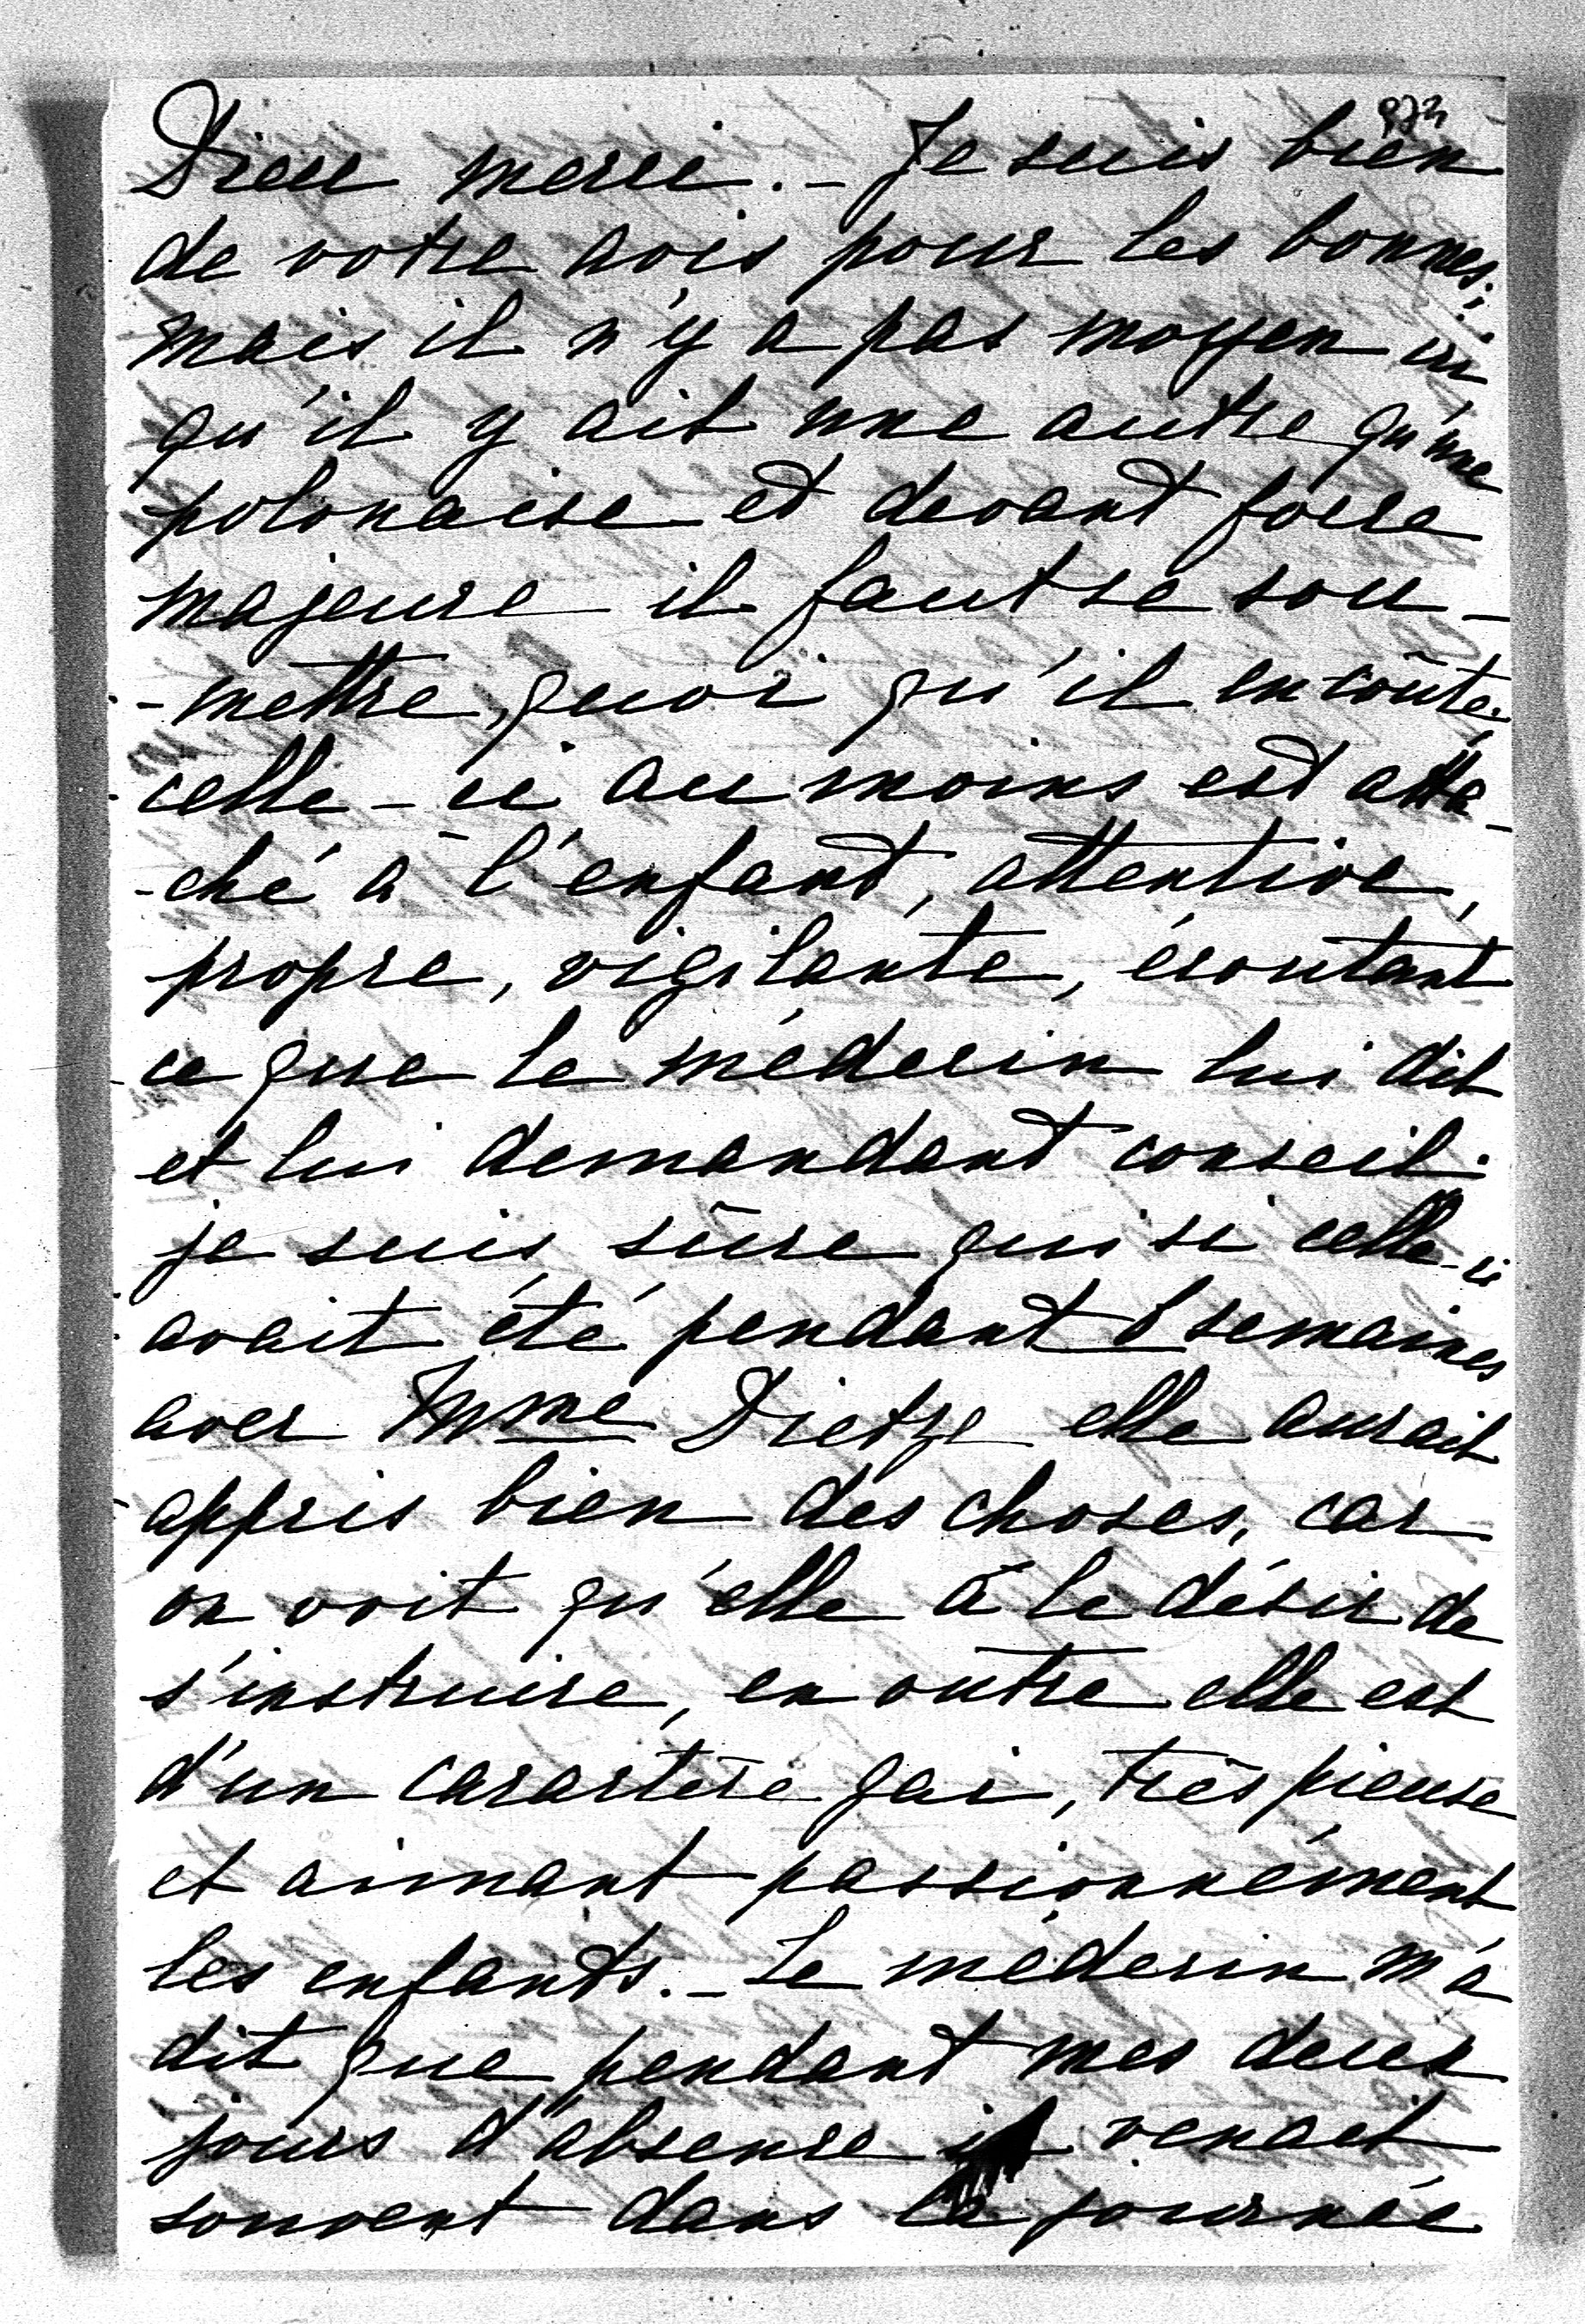 973
Dieu merci. - Je suis bien
de votre avis pour les bonnes;
mais il n'y a pas moyen ici
qu'il y ait une autre qu'une
polonaise et devant force
majeure il faut se sou-
-mettre, quoi qu'il en coûte.
celle-ci au moins est atta-
-ché à l'enfant, attentive,
propre, vigilante, écoutant
ce que le médecin lui dit
et lui demandant conseil.
je suis sûre qui si celle-ci
avait été pendant 6 semaines
avec Mme Dietze elle aurait
appris bien des choses, car
on voit qu'elle à le désir de
s'instruire, en outre elle est
d'un caractère gai, très pieuse
et aimant passionnément
les enfants. - Le médecin m'a
dit que pendant mes deux
jours d'absence il venait
souvent dans la journée